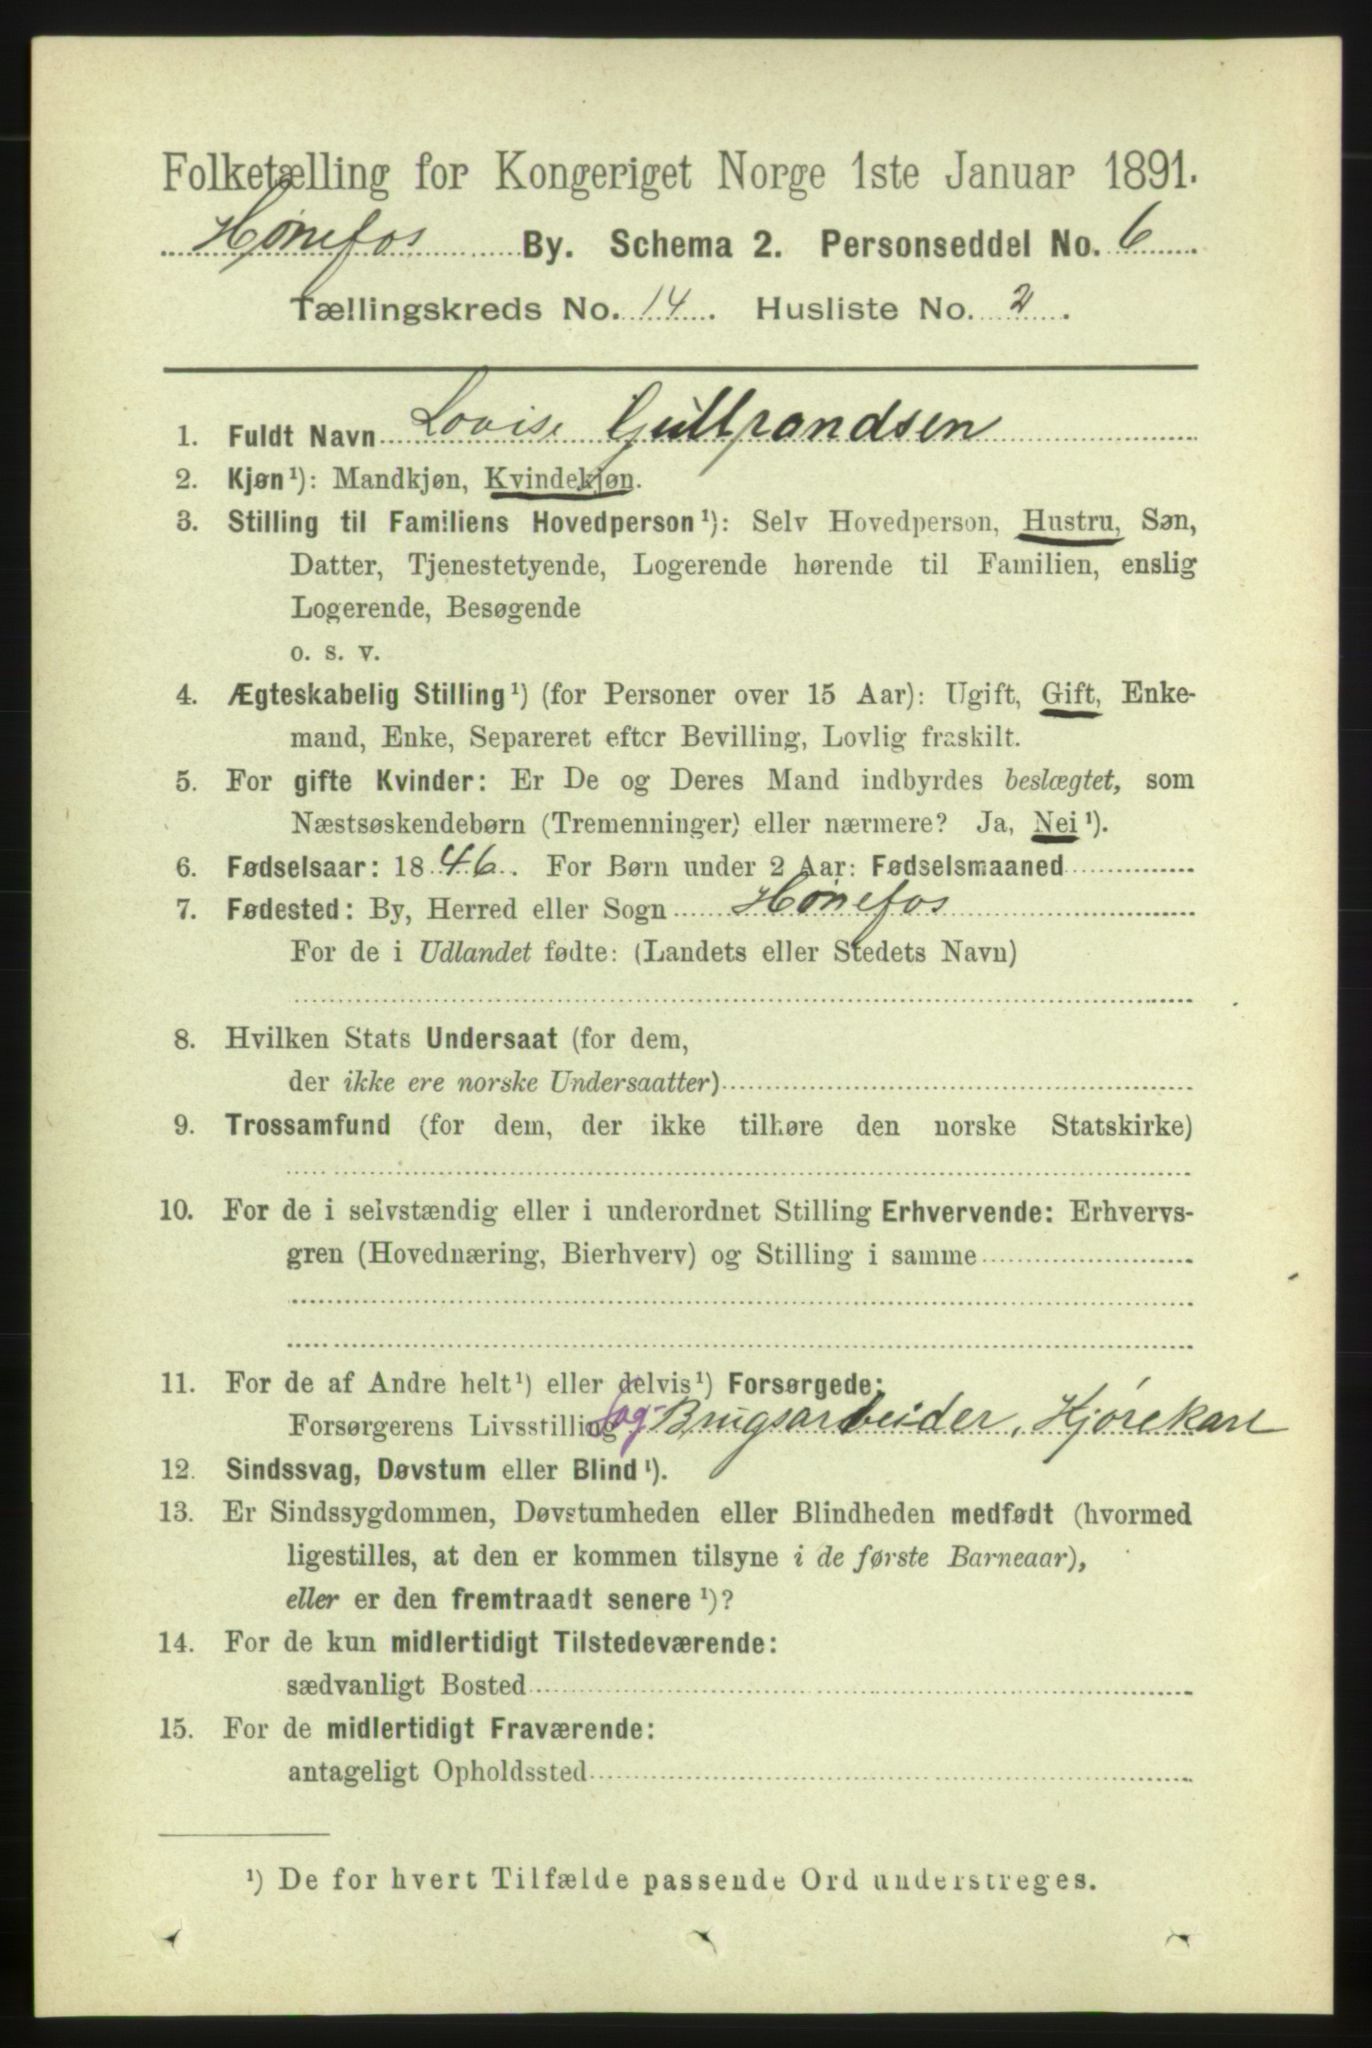 Folketælling for Kongeriget Norge 1ste Januar 1891.
Hønefos By. Schema 2. Personseddel No. 6
Tællingskreds No. 14. Husliste No. 2.
1. Fuldt Navn Lovise Gulbrandsen
2. Kjøn¹): Mandkjøn, Kvindekjøn.
3. Stilling til Familiens Hovedperson¹): Selv Hovedperson, Hustru, Søn,
Datter, Tjenestetyende, Logerende hørende til Familien, enslig
Logerende, Besøgende
o. s. v.
4. Ægteskabelig Stilling¹) (for Personer over 15 Aar): Ugift, Gift, Enke-
mand, Enke, Separeret efter Bevilling, Lovlig fraskilt.
5. For gifte Kvinder: Er De og Deres Mand indbyrdes beslægtet, som
Næstsøskendebørn (Tremenninger) eller nærmere? Ja, Nei¹).
6. Fødselsaar: 1846. For Børn under 2 Aar: Fødselsmaaned
7. Fødested: By, Herred eller Sogn Hønefos
For de i Udlandet fødte: (Landets eller Stedets Navn)
8. Hvilken Stats Undersaat (for dem,
der ikke ere norske Undersaatter)
9. Trossamfund (for dem, der ikke tilhøre den norske Statskirke)
10. For de i selvstændig eller i underordnet Stilling Erhvervende: Erhvervs-
gren (Hovednæring, Bierhverv) og Stilling i samme
11. For de af Andre helt¹) eller delvis¹) Forsørgede:
Forsørgerens Livsstilling Sag-Brugsarbeider, Kjørekarl
12. Sindssvag, Døvstum eller Blind¹).
13. Er Sindssygdommen, Døvstumheden eller Blindheden medfødt (hvormed
ligestilles, at den er kommen tilsyne i de første Barneaar),
eller er den fremtraadt senere¹)?
14. For de kun midlertidigt Tilstedeværende:
sædvanligt Bosted
15. For de midlertidigt Fraværende:
antageligt Opholdssted
¹) De for hvert Tilfælde passende Ord understreges.